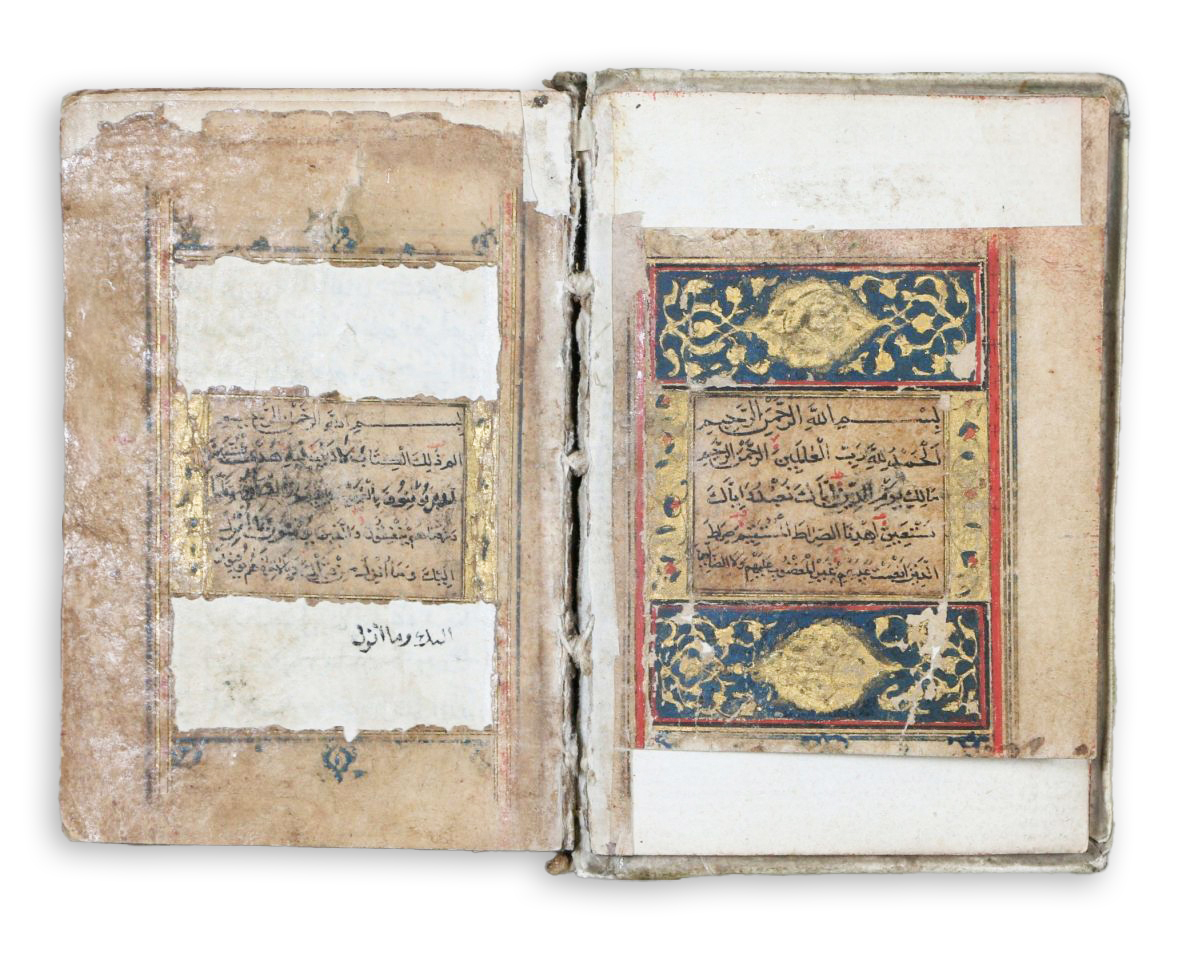 بسم الله الرحمن الرحيم
الحمد لله رب العلمين الرحمن الرحيم
مالك يوم الدين اياك نعبد واياك
نستعين اهدنا الصراط المستقيم صراط
الذين انعمت عليهم غير المغضوب عليهم ولا الضالين
بسم الله الرحمن الرحيم
الم ذلك الكتاب لا ريب فيه هدى للمتقين
الذين يؤمنون بالغيب ويقيمون الصلوة ومما
رزقناهم ينفقون والذين يؤمنون بما انزل
اليك وما أنزل من قبلك وبالاخرة هم يوقنون
اليك وما أنزل